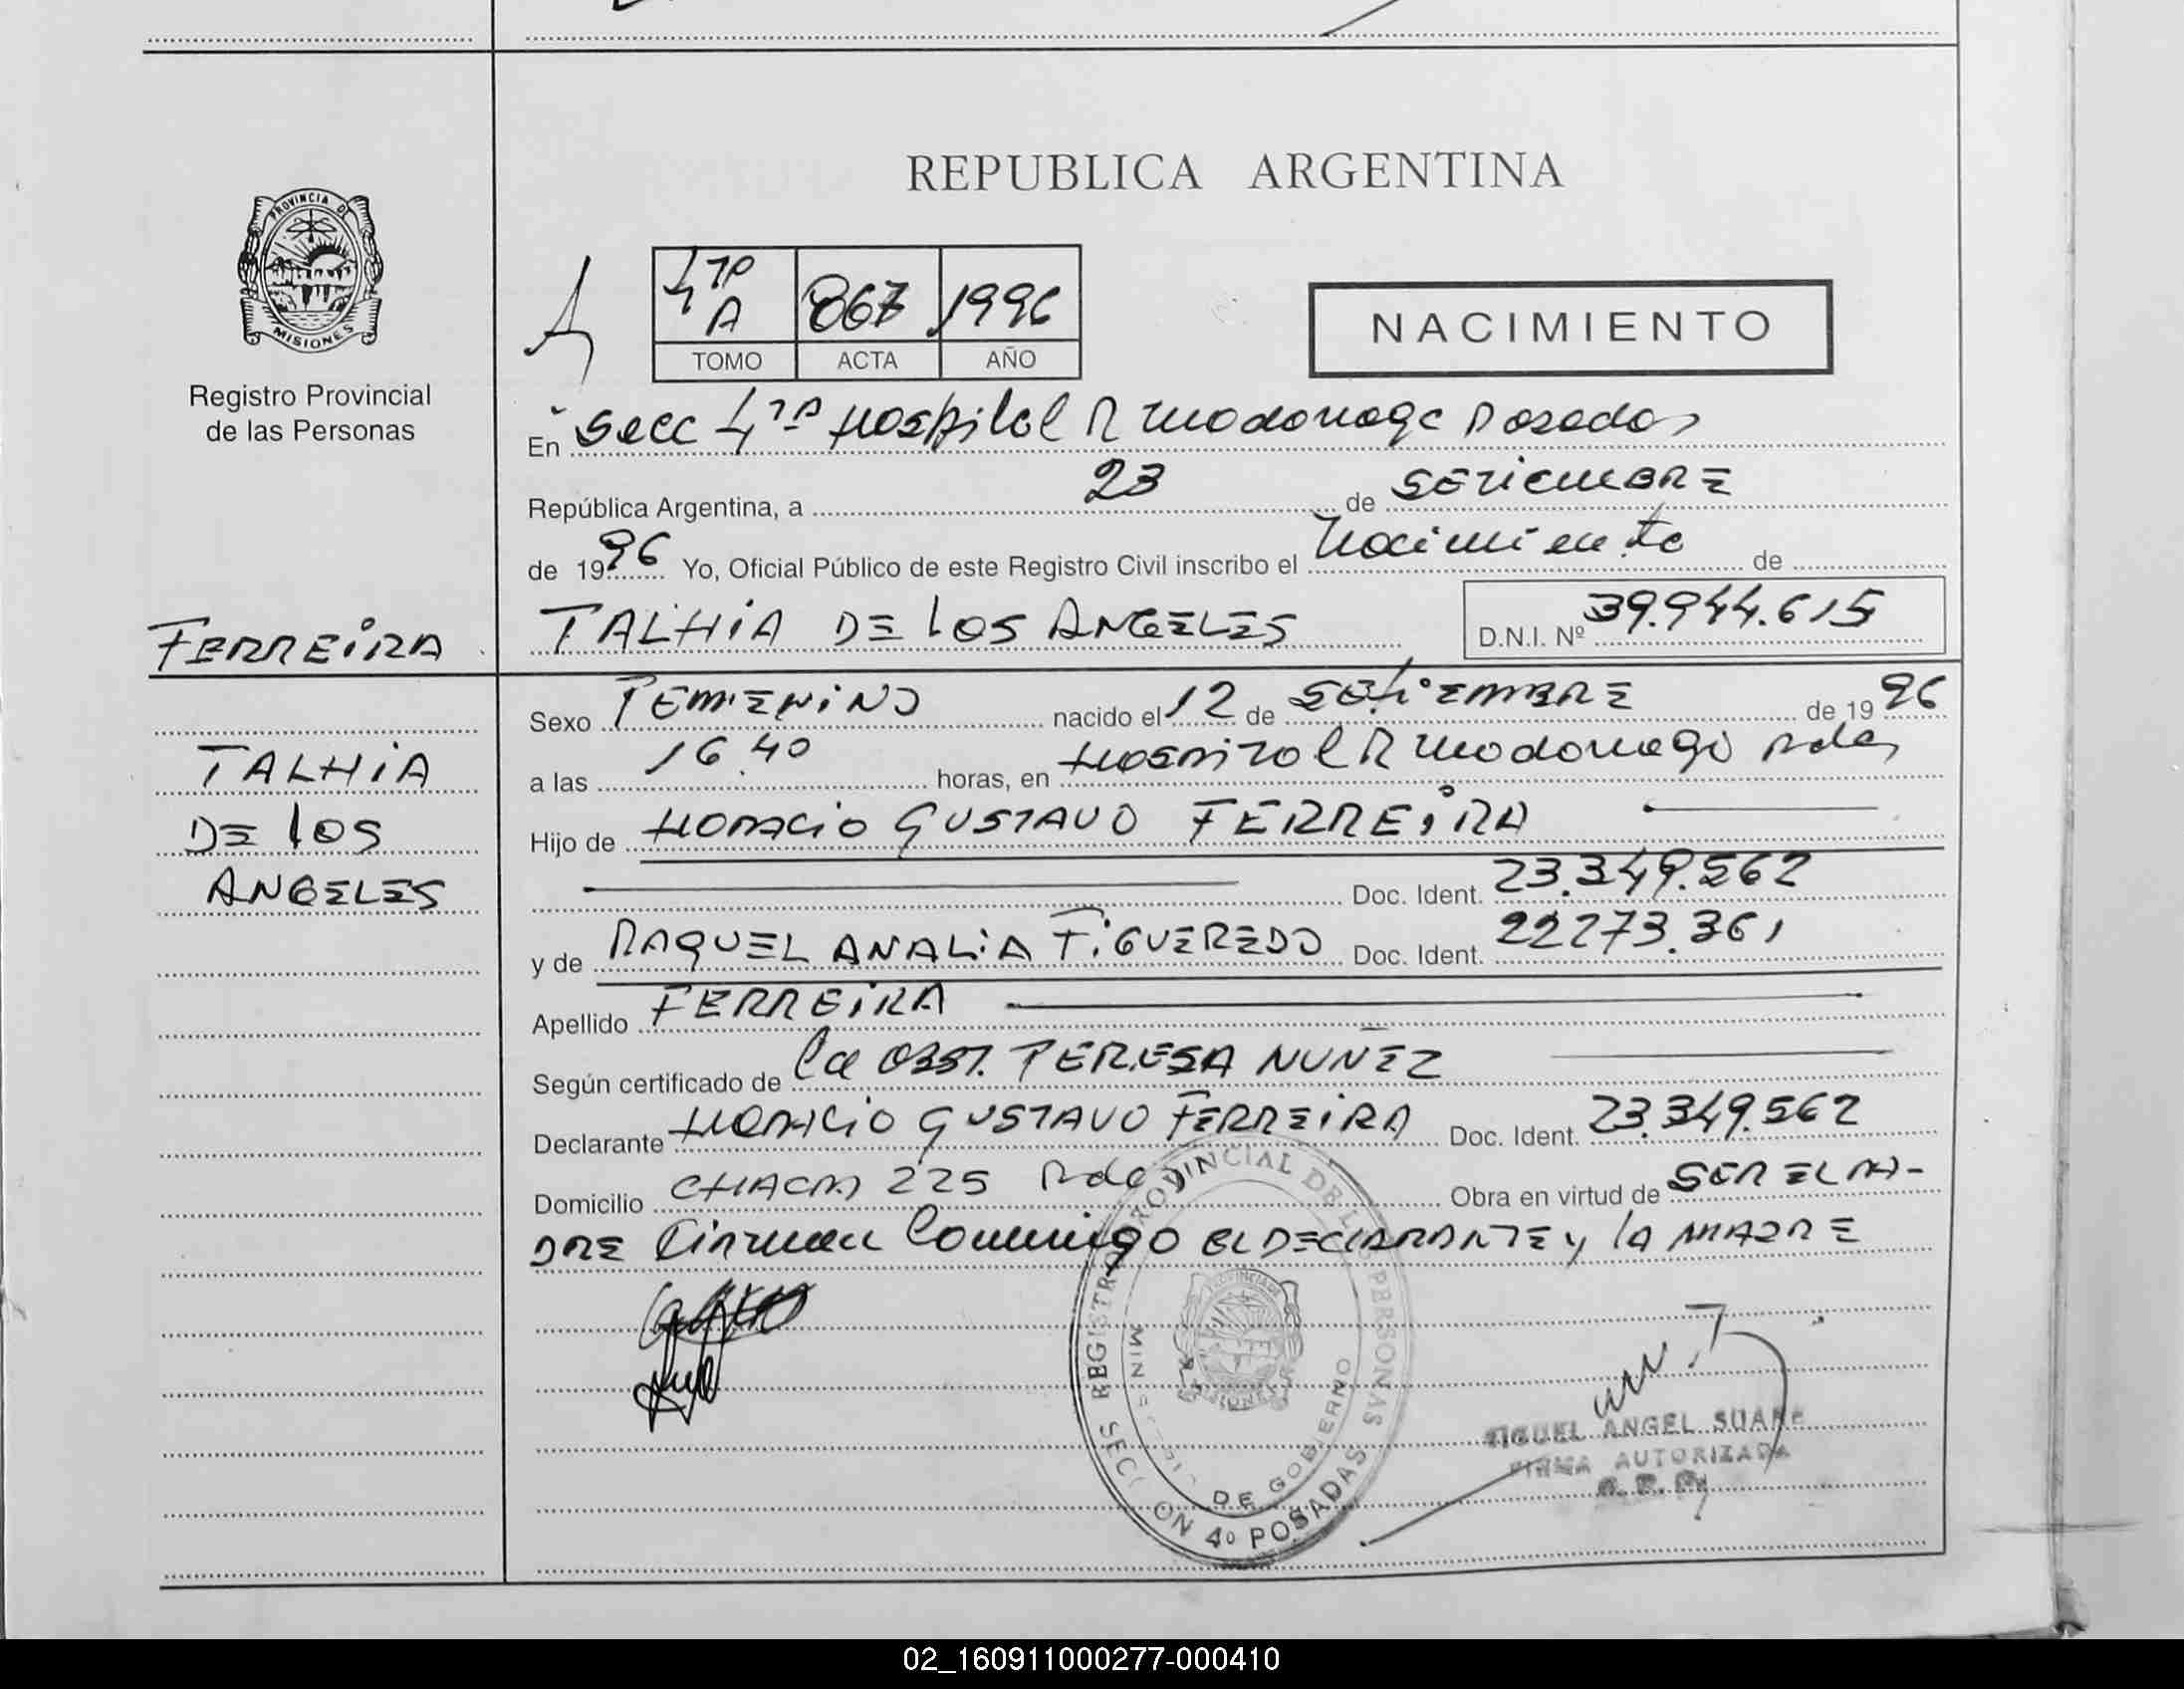 REPUBLICA ARGENTINA
PROVINCIA DE
MISIONES
Registro Provincial
de las Personas
4ta A 867 1996
TOMO ACTA AÑO
NACIMIENTO
En Secc 4ta Hospital R Madariaga Posadas
República Argentina, a 23 de SETIEMBRE
de 1996 Yo, Oficial Público de este Registro Civil inscribo el Nacimiento de
FERREIRA
TALHIA DE LOS ANGELES D.N.I. Nº 39.944.615
TALHIA
DE LOS
ANGELES
Sexo FEMENINO nacido el 12 de SETIEMBRE de 1996
a las 16.40 horas, en Hospital R Madariaga Pdas
Hijo de HORACIO GUSTAVO FERREIRA
Doc. Ident. 23.349.562
y de RAQUEL ANALIA FIGUEREDO Doc. Ident. 22273.361
Apellido FERREIRA
Según certificado de La OBST. TERESA NUÑEZ
Declarante HORACIO GUSTAVO FERREIRA Doc. Ident. 23.349.562
Domicilio CHACRA 225 Pdas Obra en virtud de SER EL PA-
DRE Firman Conmigo EL DECLARANTE y LA MADRE
REGISTRO PROVINCIAL DE LAS PERSONAS
DE GOBIERNO
SECCION 4º POSADAS
MIGUEL ANGEL SUAREZ
FIRMA AUTORIZADA
02_160911000277-000410